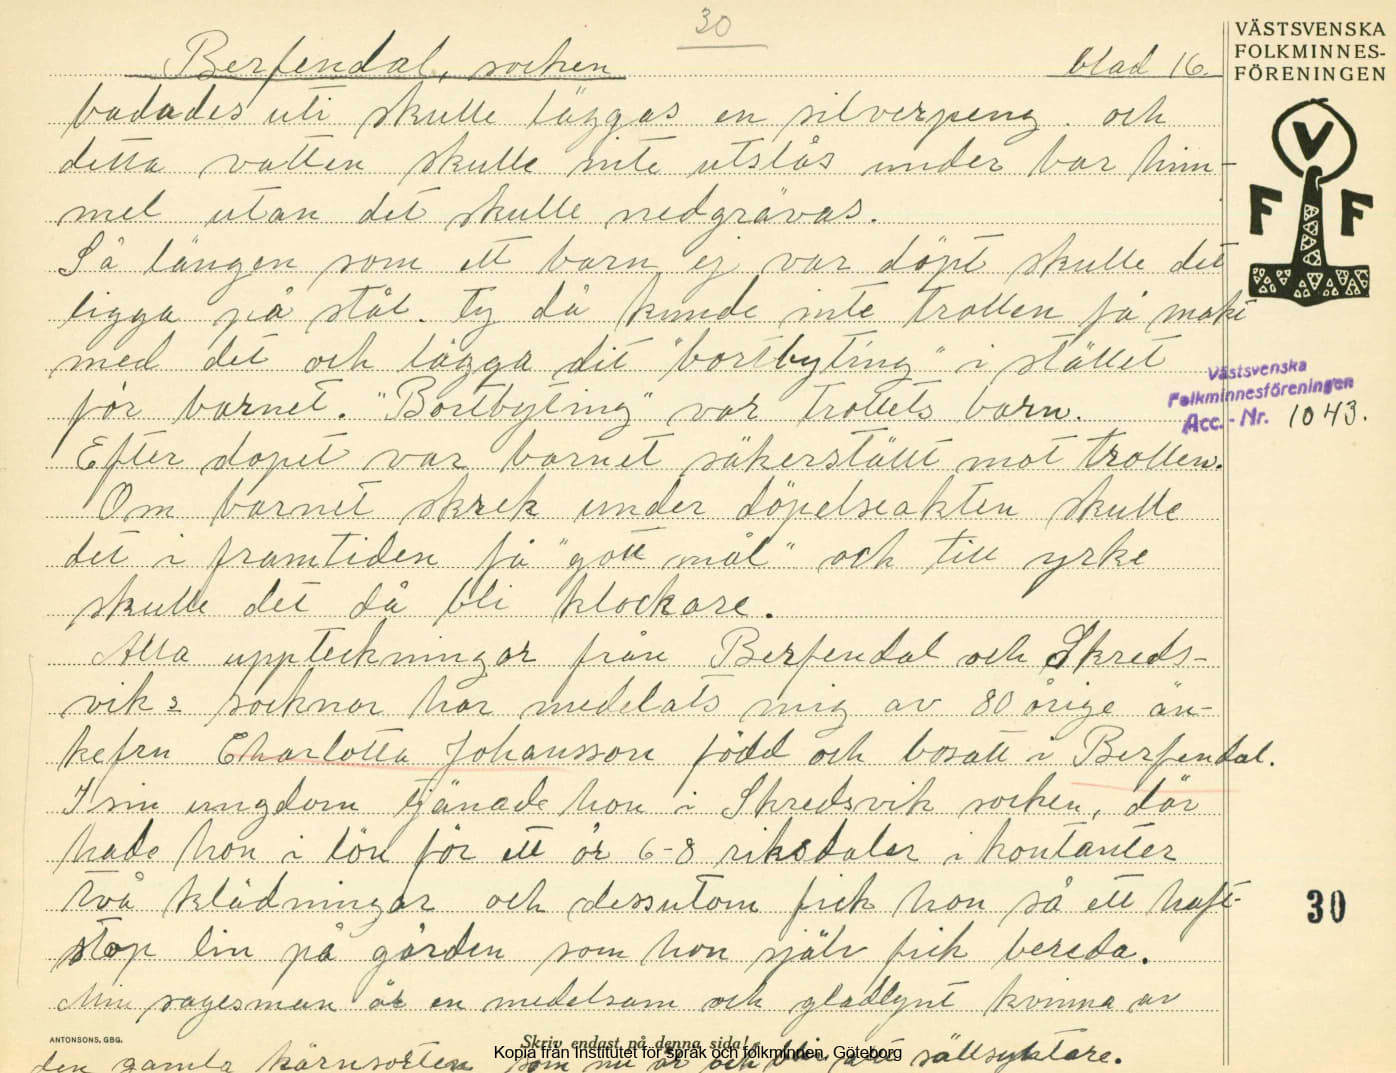 30
Berfendal, socken
blad 16.
VÄSTSVENSKA
FOLKMINNES-
FÖRENINGEN
V
F F
badades uti skulle läggas en silverpeng. och
detta vatten skulle inte utslås under bar him-
mel utan det skulle nedgrävas.
Så längen som ett barn ej var döpt skulle det
ligga på stål. Ty då kunde inte trollen få makt
med det och lägga dit "bortbyting" i stället
för barnet. "Bortbyting" var trollets barn.
Västsvenska
Folkminnesföreningen
Acc.-Nr. 1043.
Efter dopet var barnet säkerställt mot trollen.
Om barnet skrek under döpelseakten skulle
det i framtiden få "gott mål" och till yrke
skulle det då bli klockare.
Alla uppteckningar från Berfendal och Skreds-
viks socknar har medelats mig av 80 årige än-
kefru Charlotta Johansson född och bosatt i Berfendal.
I sin ungdom tjänade hon i Skredsvik socken, där
hade hon i lön för ett år 6-8 riksdaler i kontanter
två klädningar och dessutom fick hon så ett haft-
stop lin på gården som hon själv fick bereda.
30
Min sagesman är en medelsam och gladlynt kvinna av
ANTONSONS, GBG.
Skriv endast på denna sida!
Kopia från Institutet för språk och folkminnen, Göteborg
den gamla kärnsorten som nu är och blir allt sällsyntare.